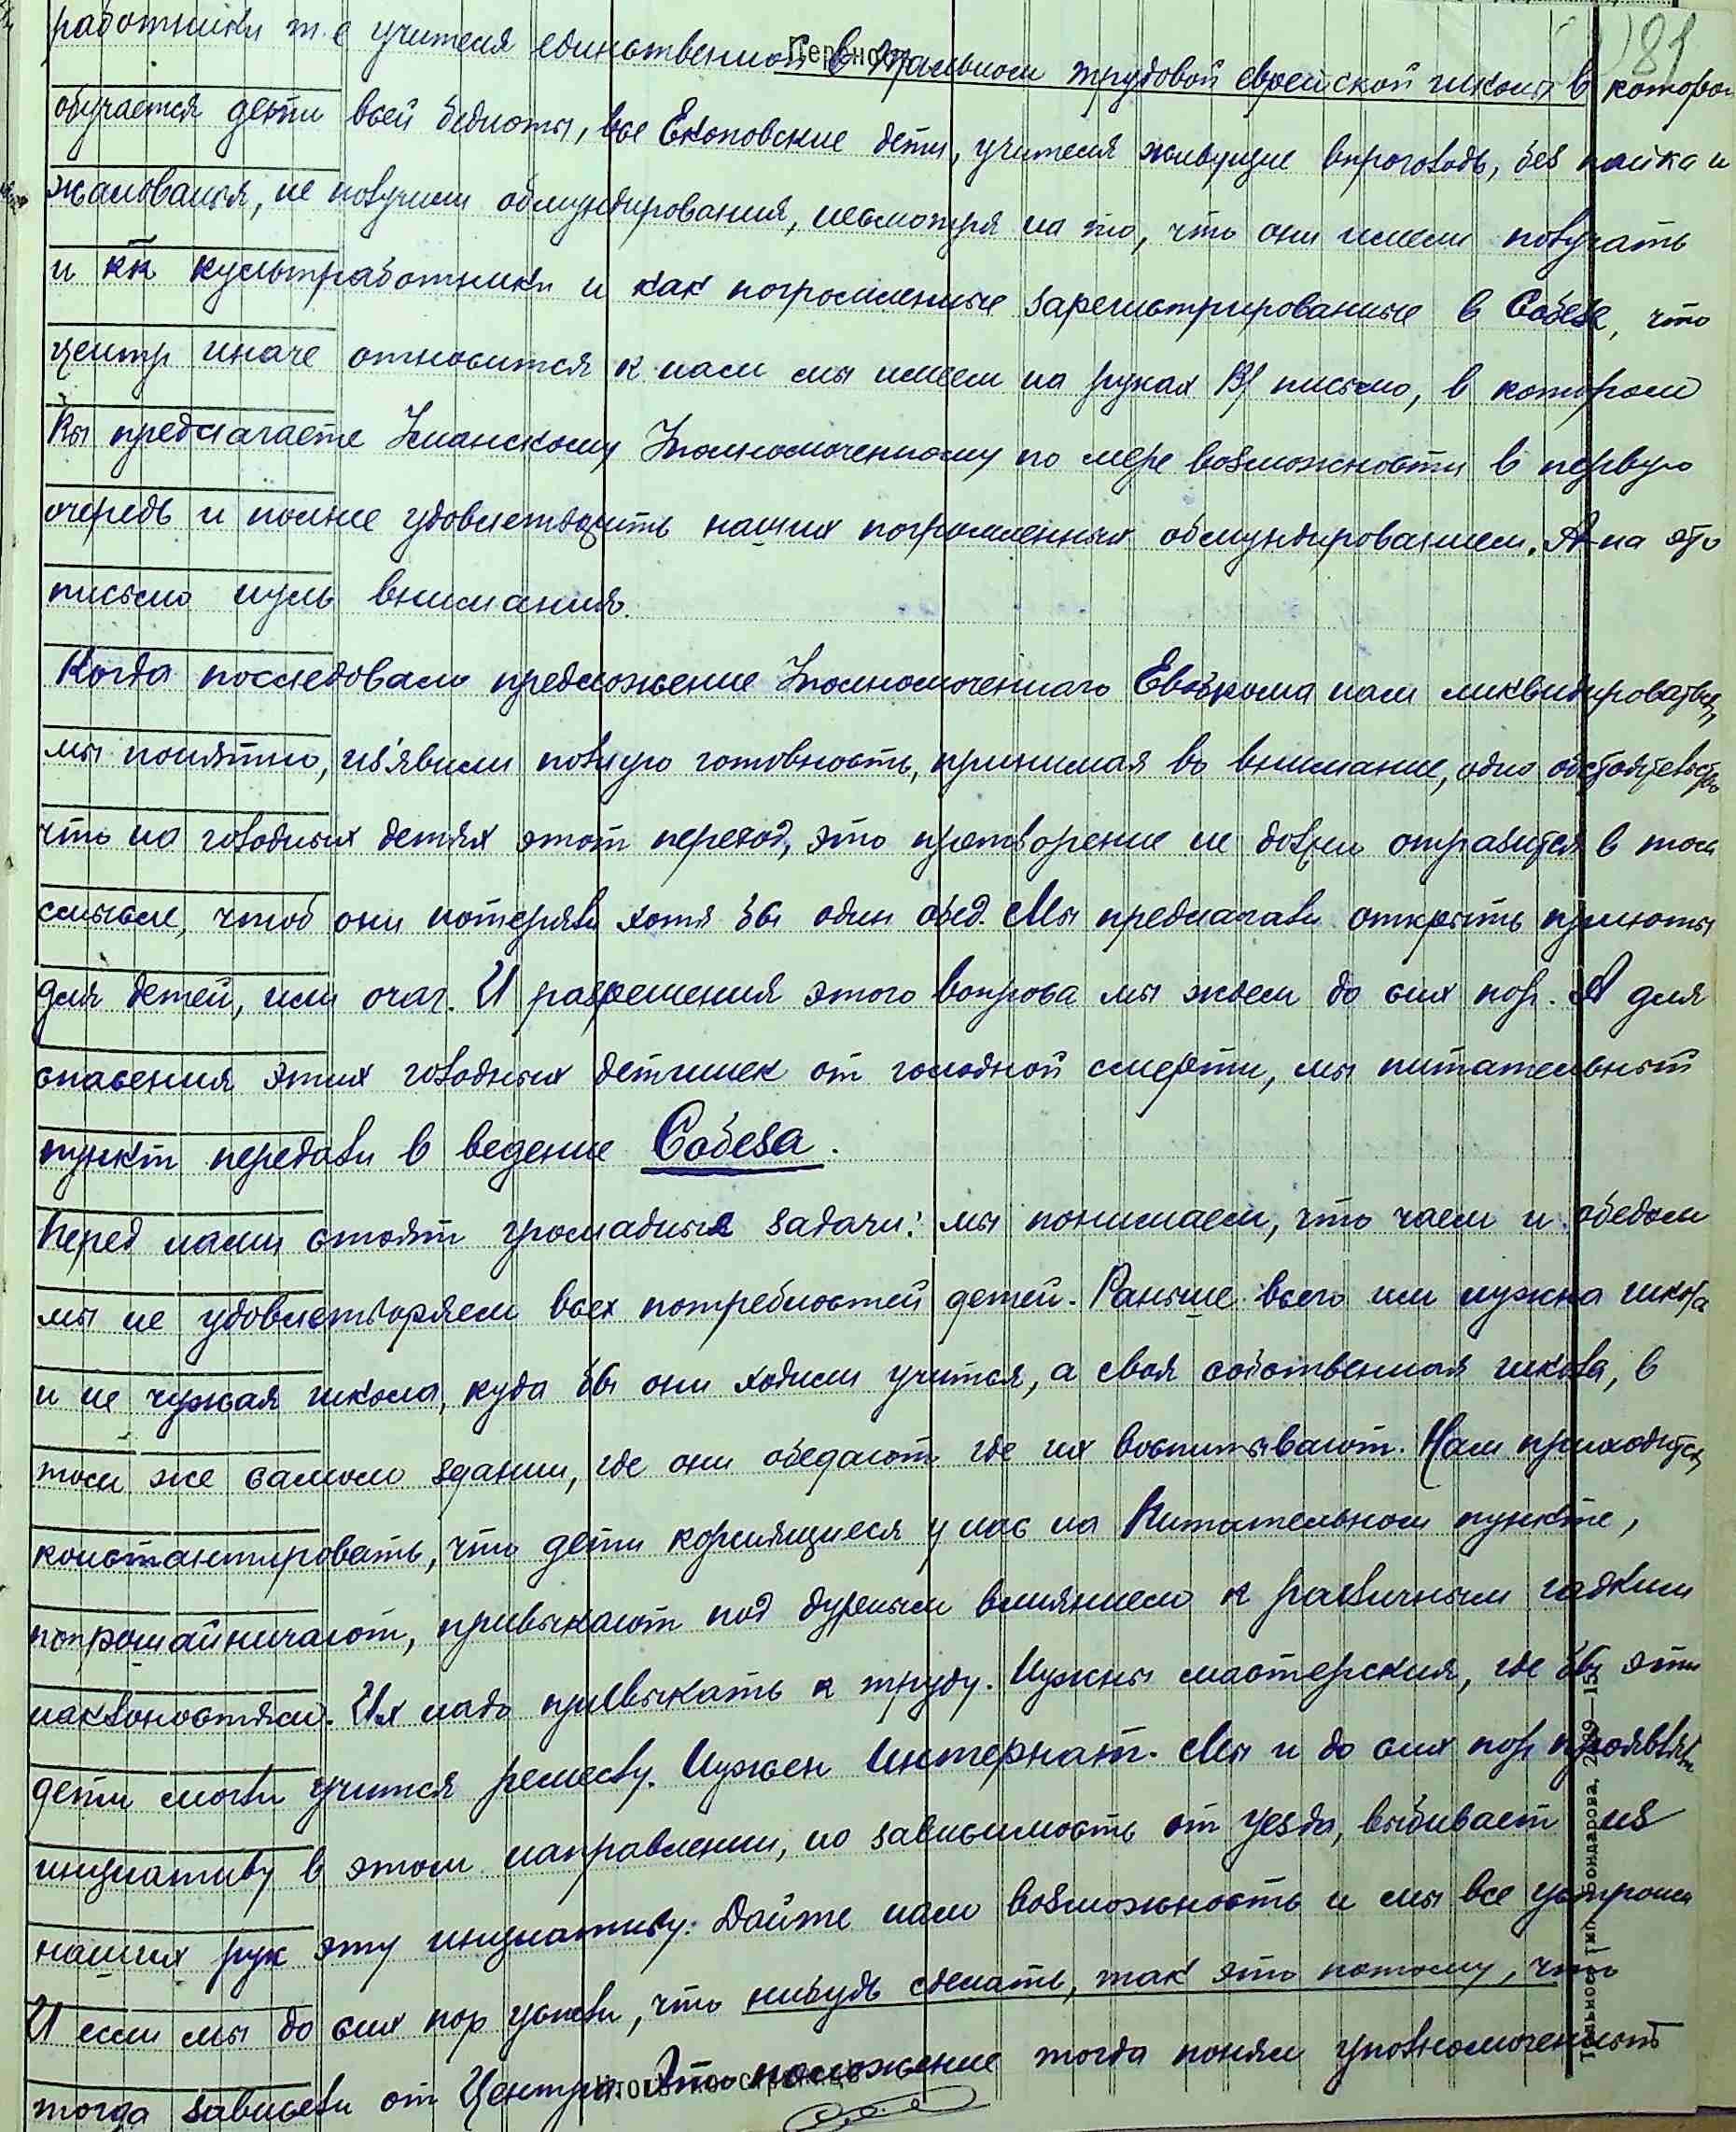 81
Перенос
работники т. е учителя единственной в Уманьском трудовой еврейской школы в которой
обучается дети всей бедноты, все Екоповские дети, учителя живущие впроголодь, без пайка и
жалованья, не получили обмундирования, несмотря на то, что они имели получать
и кк культработники и как погромленные зарегистрированные в Собезе, что
центр иначе относится к нам мы имеем на руках В/ письмо, в котором
Вы предлагаете Уманскому Уполномоченному по мере возможности в первую
очередь и полнее удовлетворить наших погромленных обмундированием. А на это
письмо нуль внимания.
Когда последовало предложение Уполномоченнаго Евобкома нам ликвидироваться,
мы понятно, из'явили полную готовность, принимая во внимание, одно обстоятельство
что на голодных детях этот переход, это претворение не должен отразится в том
смысле, чтоб они потеряли хотя бы один обед. Мы предлагали открыть приюты
для детей, или очаг. И разрешения этого вопроса мы ждем до сих пор. А для
спасения этих голодных детишек от голодной смерти, мы питательный
пункт передали в ведение Собеза.
Перед нами стоят громадные задачи: мы понимаем, что чаем и обедом
мы не удовлетворяем всех потребностей детей. Раньше всего им нужна школа
и не чужая школа, куда бы они ходили учится, а своя собственная школа, в
том же самом здании, где они обедают где их воспитывают. Нам приходится
константировать, что дети кормящиеся у нас на Питательном пункте,
попрошайничают, привыкают под дурным влиянием к различным гадким
наклоностям. Их надо привыкать к труду. Нужны мастерския, где бы эти
дети могли учится ремеслу. Нужен Интернат. Мы и до сих пор проявляли
инциативу в этом направлении, но зависимость от уезда, выбивает из
наших рук эту инциативу. Дайте нам возможность и мы все устроим
И если мы до сих пор успели, что нибудь сделать, так это потому, что
тогда зависели от Центра. Это положение тогда понял уполномоченный
Итого по странице
тип. Бондарова, 2139—15